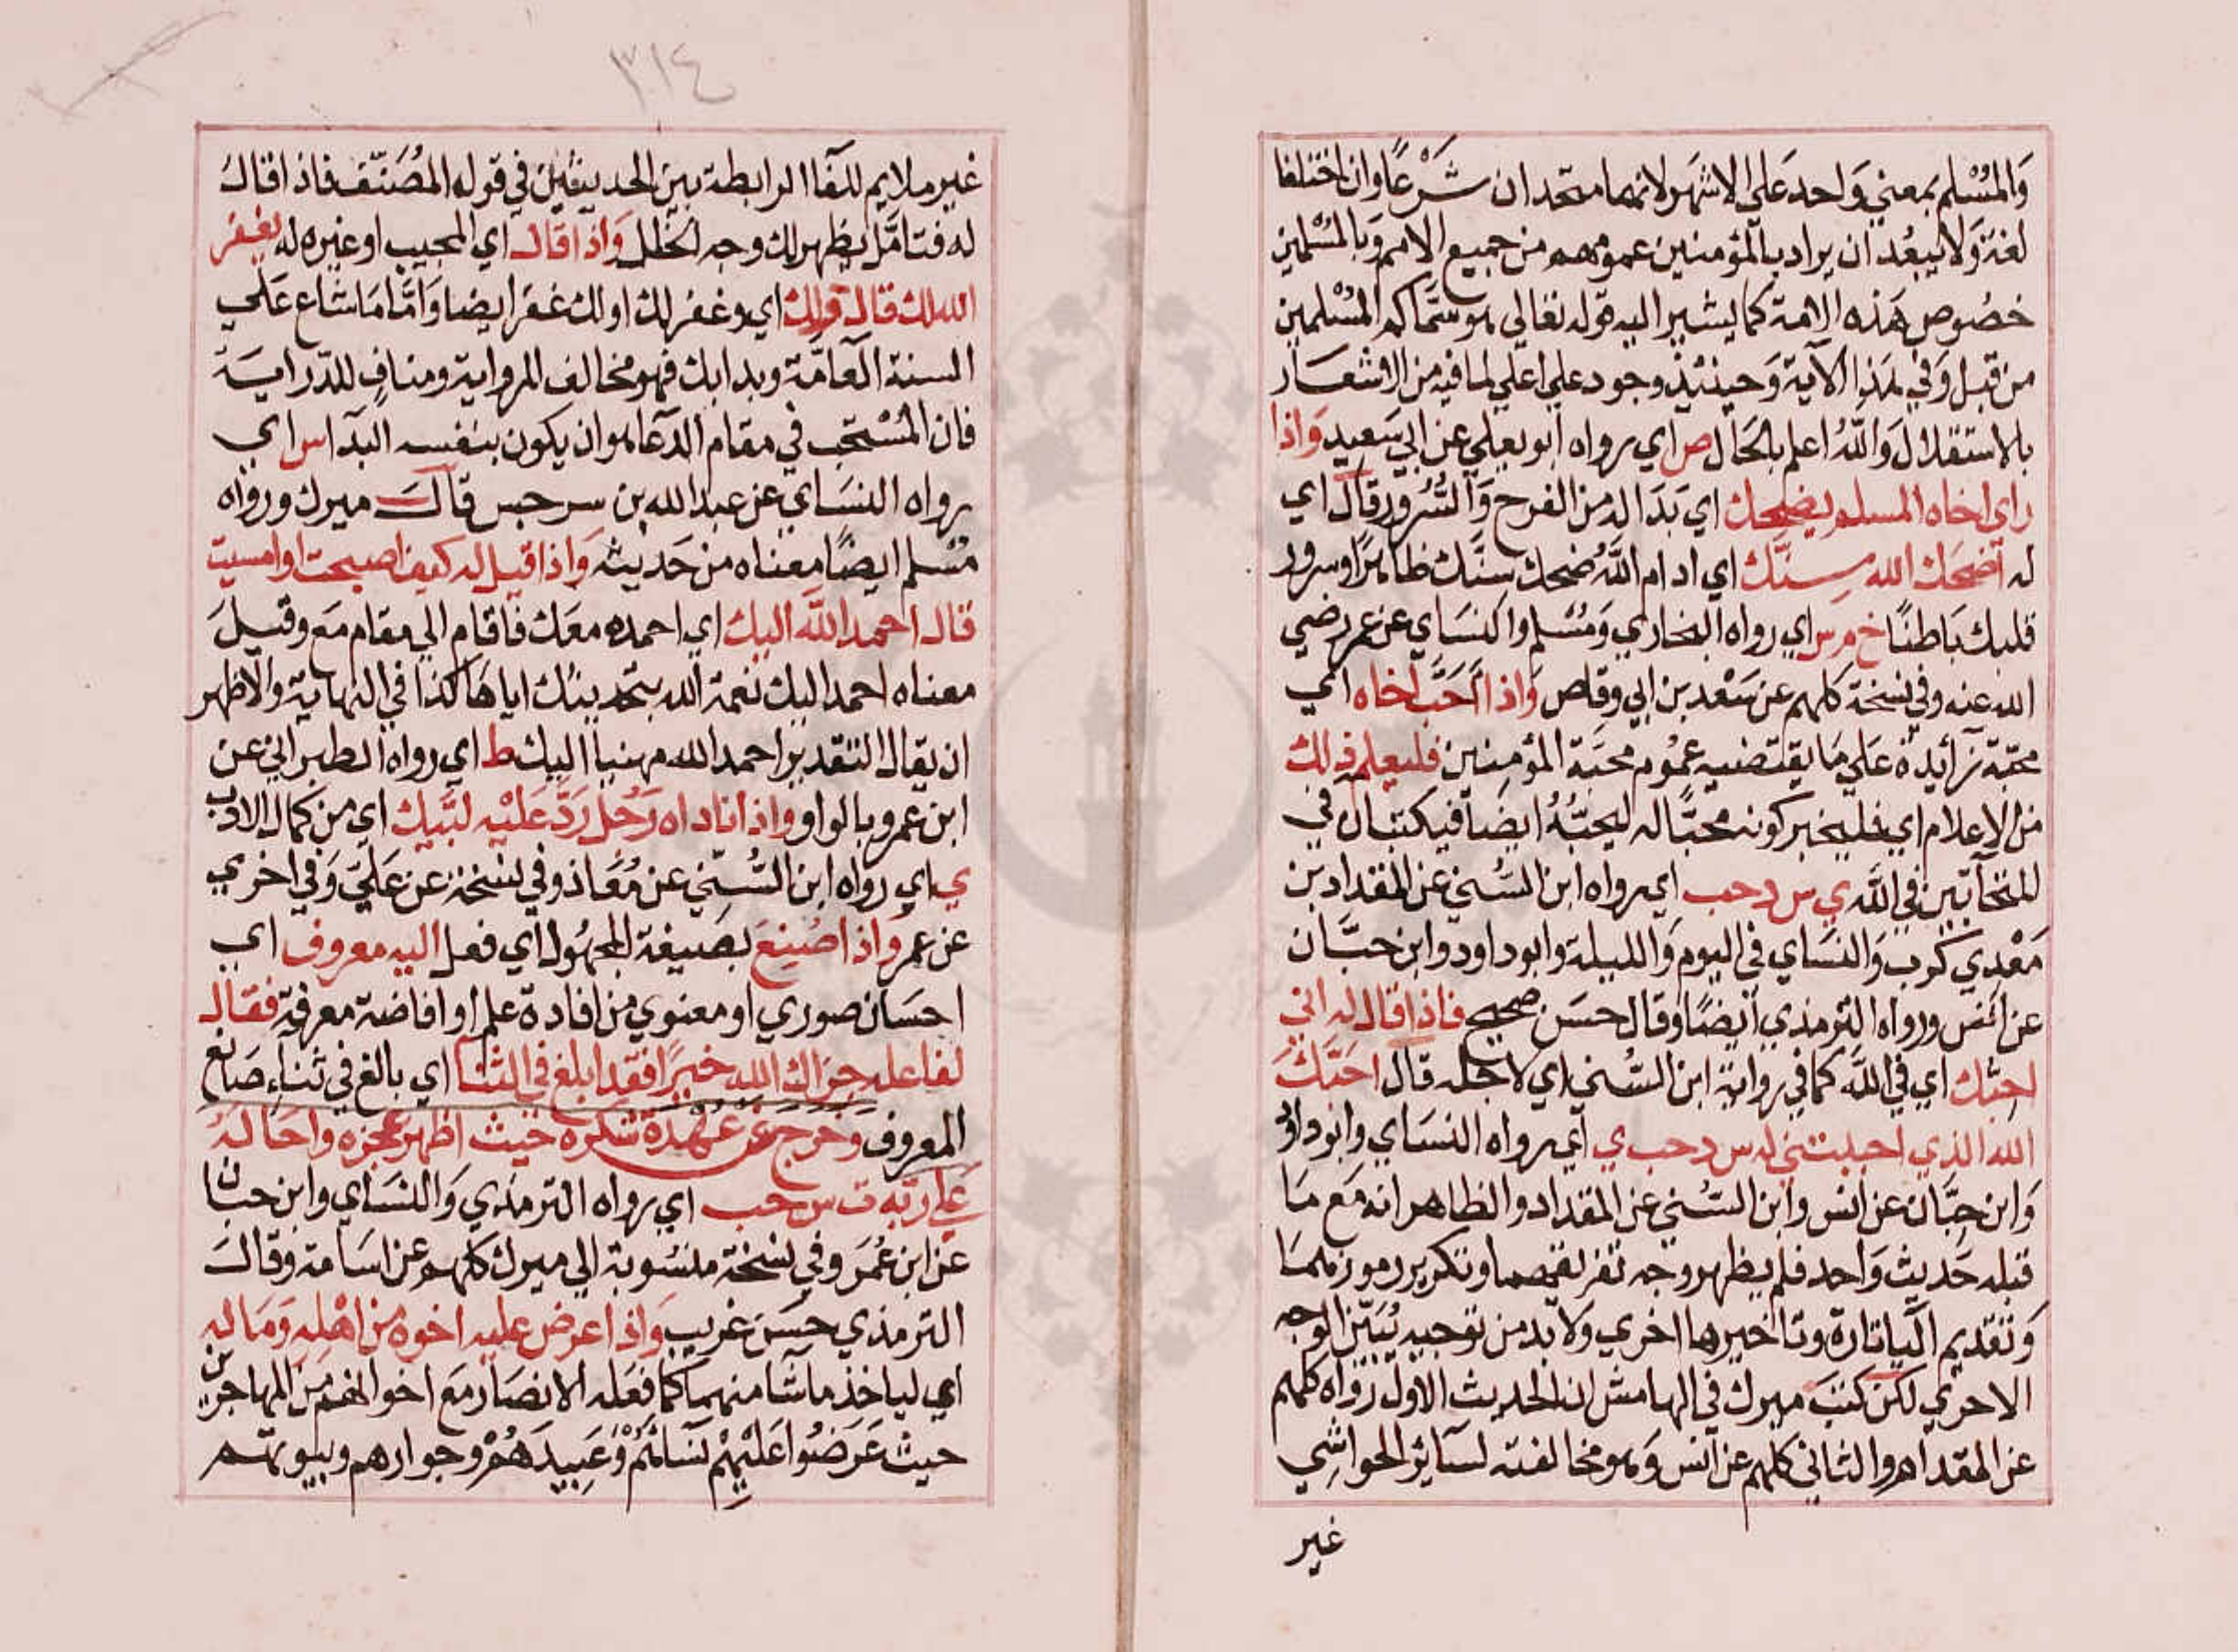 والمسلم بمعني واحد علي الاشهر لانهما متحدان شرعا وان اختلفا
لغة ولا يبعد ان يراد بالمؤمنين عمومهم من جميع الامم وبالمسلمين
خصوص هذه الامة كما يشير اليه قوله تعالي هو سماكم المسلمين
من قبل وفي هذا الآية وحينئذ وجود علي اعلي لما فيه من الاشعار
بالاستقلال والله اعلم بالحال ص اي رواه ابو يعلي عن ابي سعيد واذا
راي اخاه المسلم يضحك اي بدا له من الفرح والسرور قال اي
له اضحك الله سنك اي ادام الله ضحك سنك ظاهرا وسرور
قلبك باطنا خ م س اي رواه البخاري ومسلم والنساي عن عمر رضي
الله عنه وفي نسخة كلهم عن سعد بن ابي وقاص واذا احب اخاه اي
محبة زائدة علي ما يقتضيه عموم محبة المؤمنين فليعلمه ذلك
من الاعلام اي فليخبر كونه محبا له ليحبه ايضا فيكتبان في
المتحابين في الله ي س د حب اي رواه ابن السني عن المقداد بن
معدي كرب والنساي في اليوم والليلة وابو داود وابن حبان
عن انس ورواه الترمذي ايضا وقال حسن صحيح فاذا قال له اني
احبك اي في الله كما في رواية ابن السني اي لاجله قال احبك
الله الذي احببتني له س د حب ي اي رواه النساي وابو داود
وابن حبان عن انس وابن السني عن المقداد والظاهر انه مع ما
قبله حديث واحد فلم يظهر وجه تفريقهما وتكرير رموزهما
وتقديم اليا تارة وتاخيرها اخري ولا بد من توجيه يبين الوجه
الاحري لكن كتب ميرك في الهامش ان الحديث الاول رواه كلهم
عن المقداد والثاني كلهم عن انس وهو مخالفته لسائر الحواشي
غير
٣١٤
غير ملايم للفا الرابطة بين الحديثين في قوله المصنف فاذا قال
له فتامل يظهر لك وجه الخلل واذا قال اي المجيب او غيره له يغفر
الله لك قال ولك اي وغفر لك او لك غفر ايضا واما ما شاع علي
السنة العامة وبدا بك فهو مخالف للرواية ومناف للدراية
فان المستحب في مقام الدعا هو ان يكون بنفسه البدا س اي
رواه النساي عن عبد الله بن سرجس قال ميرك ورواه
مسلم ايضا معناه من حديثه واذا قيل له كيف اصبحت او امسيت
قال احمد الله اليك اي احمده معك فاقام الي مقام مع وقيل
معناه احمد اليك نعمة الله بتحديثك اياها كذا في النهاية والاظهر
ان يقال التقدير احمد الله مهنيا اليك ط اي رواه الطبراني عن
ابن عمرو بالواو واذا ناداه رجل رد عليه لبيك اي من كمال الادب
ي اي رواه ابن السني عن معاذ وفي نسخة عن علي وفي اخري
عن عمر واذا صنع بصيغة المجهول اي فعل اليه معروف اي
احسان صوري او معنوي من افادة علم او افاضة معرفة فقال
لفاعله جزاك الله خيرا فقد ابلغ في الثنا اي بالغ في ثناء صانع
المعروف وخرج عن عهدة شكره حيث اظهر عجزه واحاله
علي ربه ت س حب اي رواه الترمذي والنساي وابن حبان
عن ابن عمر وفي نسخة منسوبة الي ميرك كلهم عن اسامة وقال
الترمذي حسن غريب واذا عرض عليه اخوه من اهله وماله
اي لياخذ ما شا منهما كما فعله الانصار مع اخوانهم من المهاجرين
حيث عرضوا عليهم نسائهم وعبيدهم وجوارهم وبيوتهم